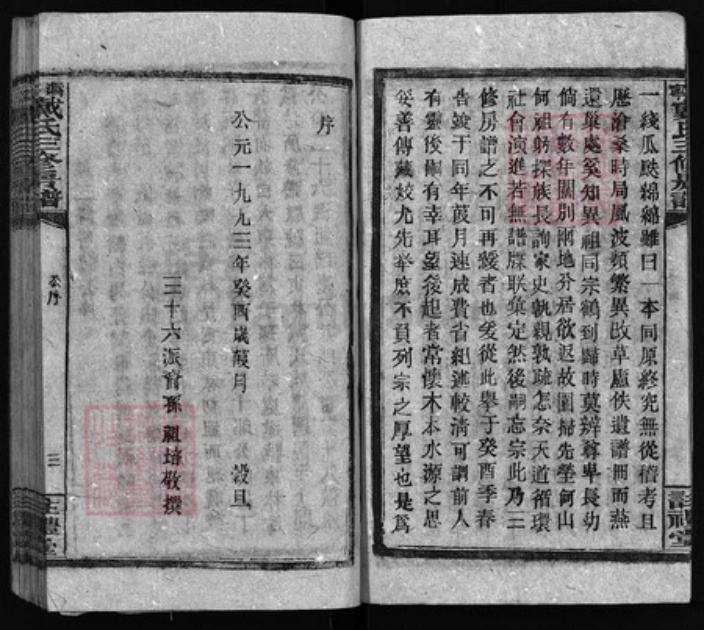 一綫瓜瓞綿綿雖曰一本同原終究無從稽考且
歷滄桑時局風波頻繁異改草廬佚遺譜冊而燕
還巢處奚知異祖同宗鶴到歸時莫辨尊卑長幼
倘有數年闊別兩地分居欲返故園掃先塋何山
何祖躬探族長詢家史孰親孰疏怎奈天道循環
社會演進若無譜牒聯彙定然後嗣忘宗此乃三
修房譜之不可再緩者也爰從此舉于癸酉季春
告竣于同年葭月速成費省紀述較清可謂前人
有靈後嗣有幸耳望後起者常懷木本水源之思
妥善傳藏效尤先举庶不負列宗之厚望也是爲
序
公元一九九三年癸酉歲葭月
穀旦
三十六派裔孫祖培敬撰
戴氏三修房譜
卷序
三